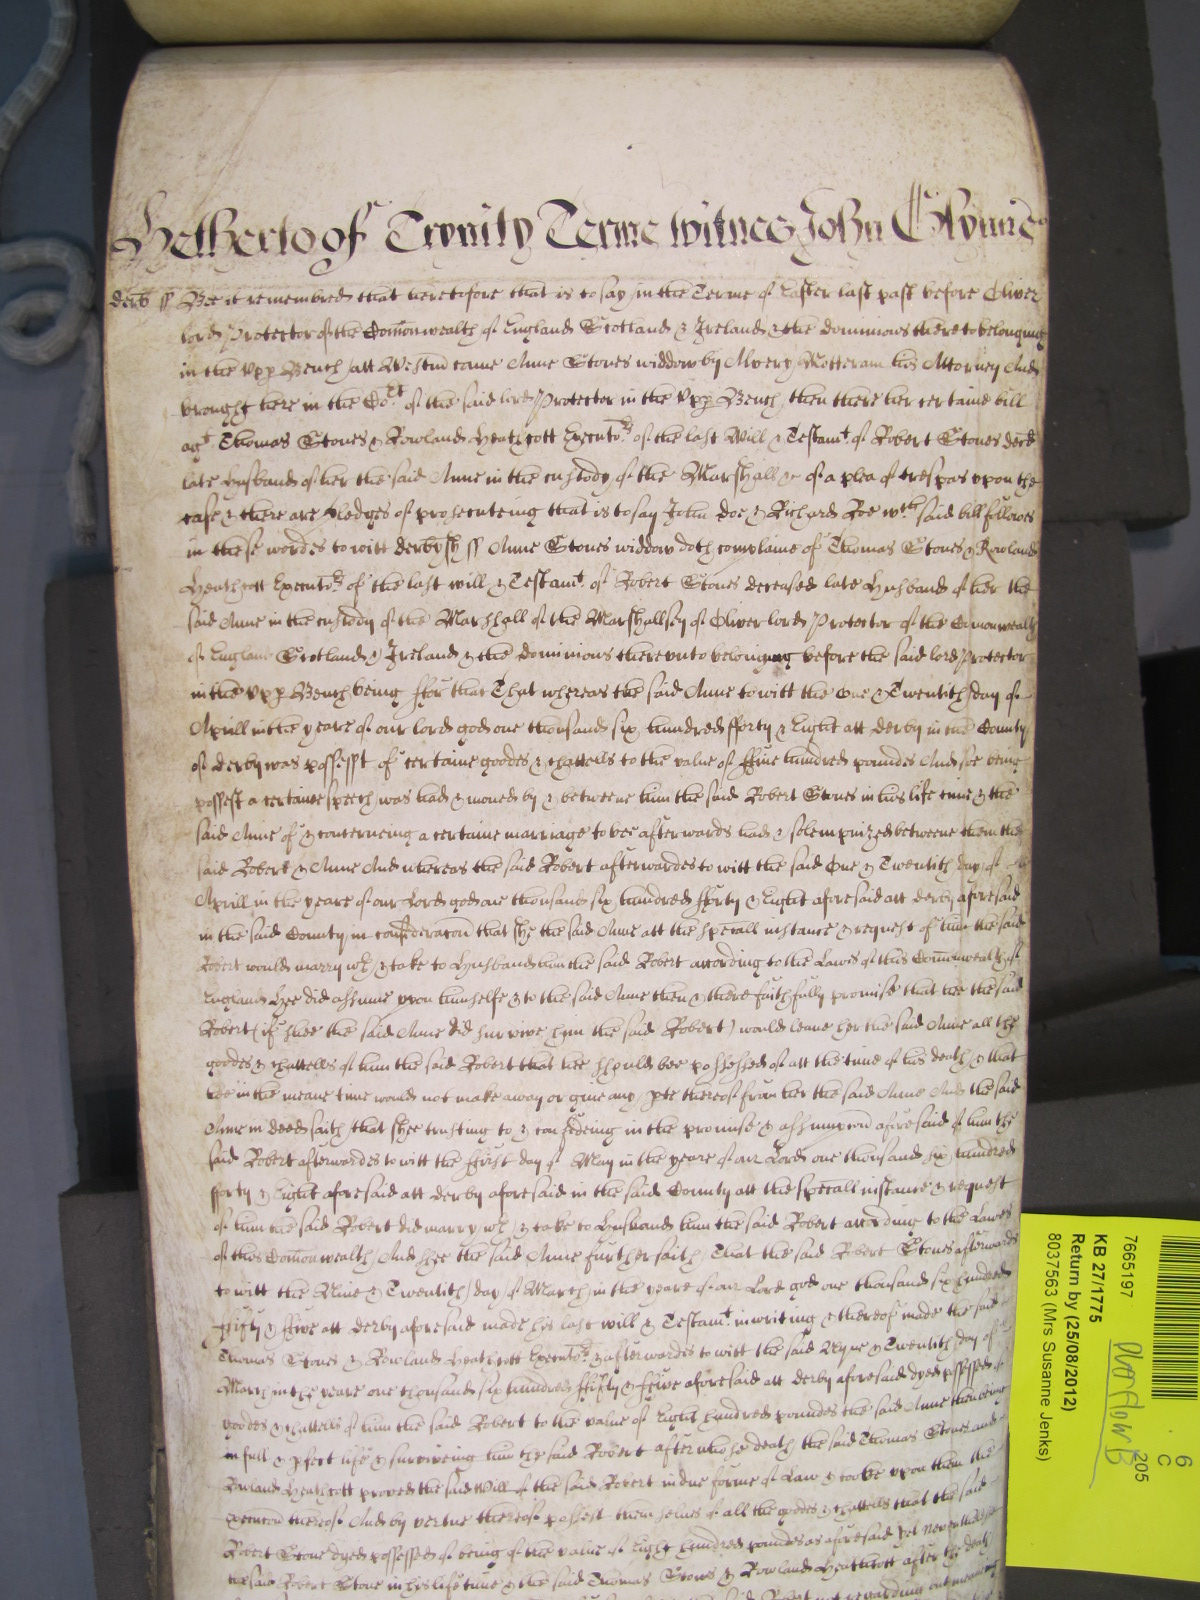 Hetherto of Trynity Terme witnes John Glynne
derb ss Bee it remembred that heretofore that is to say in the Terme of Easter last past before Oliver
lord Protector of the Comonwealth of England Scotland & Ireland & the dominions thereto belonging
in the Upp Bench att Westm came Anne Stones widdow by Alvery Motteram his Attorney And
brought here in the Cort of the said lord Protector in the Upp Bench then there her certaine bill
agt Thomas Stones & Rowland Heathcott Executors of the last Will & Testamt of Robert Stones decd
late husband of her the said Anne in the custody of the Marshall &c of a plea of trespas upon the
case & there are pledges of prosecuteing that is to say John Doe & Richard Roe wch said bill followes
in these wordes to witt derbysh ss Anne Stones widdow doth complaine of Thomas Stones & Rowland
Heathcott Executors of the last will & Testamt of Robert Stones deceased late husband of her the
said Anne in the custody of the Marshall of the Marshallsey of Oliver lord Protector of the Comonwealth
of England Scotland & Ireland & the dominions thereunto belonging before the said lord Protector
in the Upp Bench being ffor that That whereas the said Anne to witt the One & Twentith day of
Aprill in the yeare of our lord god one thousand six hundred fforty & Eight att derby in the County
of derby was possest of certaine goodes & chattells to the value of ffive hundred poundes And soe being
possest a certaine speech was had & moved by & betweene him the said Robert Stones in his life time & the
said Anne of & concerneing a certaine marriage to bee afterwards had & solempnized betweene them the
said Robert & Anne And whereas the said Robert afterwardes to witt the said One & Twentith day of
Aprill in the yeare of our Lord god one thousand six hundred fforty & Eight aforesaid att derby aforesaid
in the said County in consideracon that she the said Anne att the speciall instance & request of him the said
Robert would marry wth & take to husband him the said Robert according to the Lawes of this Comonwealth of
England Hee did assume upon himselfe & to the said Anne then & there faithfully promise that hee the said
Robert (if shee the said Anne did survive him the said Robert) would leave her the said Anne all the
goodes & chattells of him the said Robert that hee should bee possessed of att the time of his death & that
hee in the meane time would not make away or give any pte thereof from her the said Anne And the said
Anne in deed saith that shee trusting to & confideing in the promise & assumpcon aforesaid of him the
said Robert afterwardes to witt the ffirst day of May in the yeare of our Lord one thousand six hundred
fforty & Eight aforesaid att derby aforesaid in the said County att the speciall instance & request
of him the said Robert did marry wth & take to husband him the said Robert according to the Lawes
of this Comonwealth And shee the said Anne further saith That the said Robert Stones afterwards
to witt the Nine & Twentith day of March in the yeare of our Lord god one thousand six hundred
ffifty & ffive att derby aforesaid made his last will & Testamt in writing & thereof made the said
Thomas Stones & Rowland Heathcott Executors & afterwardes to witt the said Nyne & Twentith day of
March in the yeare one thousand six hundred ffifty & ffive aforesaid att derby aforesaid dyed possessed of
goodes & chattells of him the said Robert to the value of Eight hundred poundes the said Anne then being
in full & pfect life & surviveing him the said Robert after whose death the said Thomas Stones and
Rowland Heathcott proved the said Will of the said Robert in due forme of Law & tooke upon them the
execucon thereof And by vertue thereof possest themselves of all the goodes & chattells that the said
Robert Stone dyed possessed of being of the value of Eight hundred poundes as aforesaid Yet neverthelesse
the said Robert Stone in his life time & the said Thomas Stones & Rowland Heathcott after the death
said Robert not regarding
7665197
KB 27/1775
Return by (25/08/2012)
8037563 (Mrs Susanne Jenks)
205
6
C